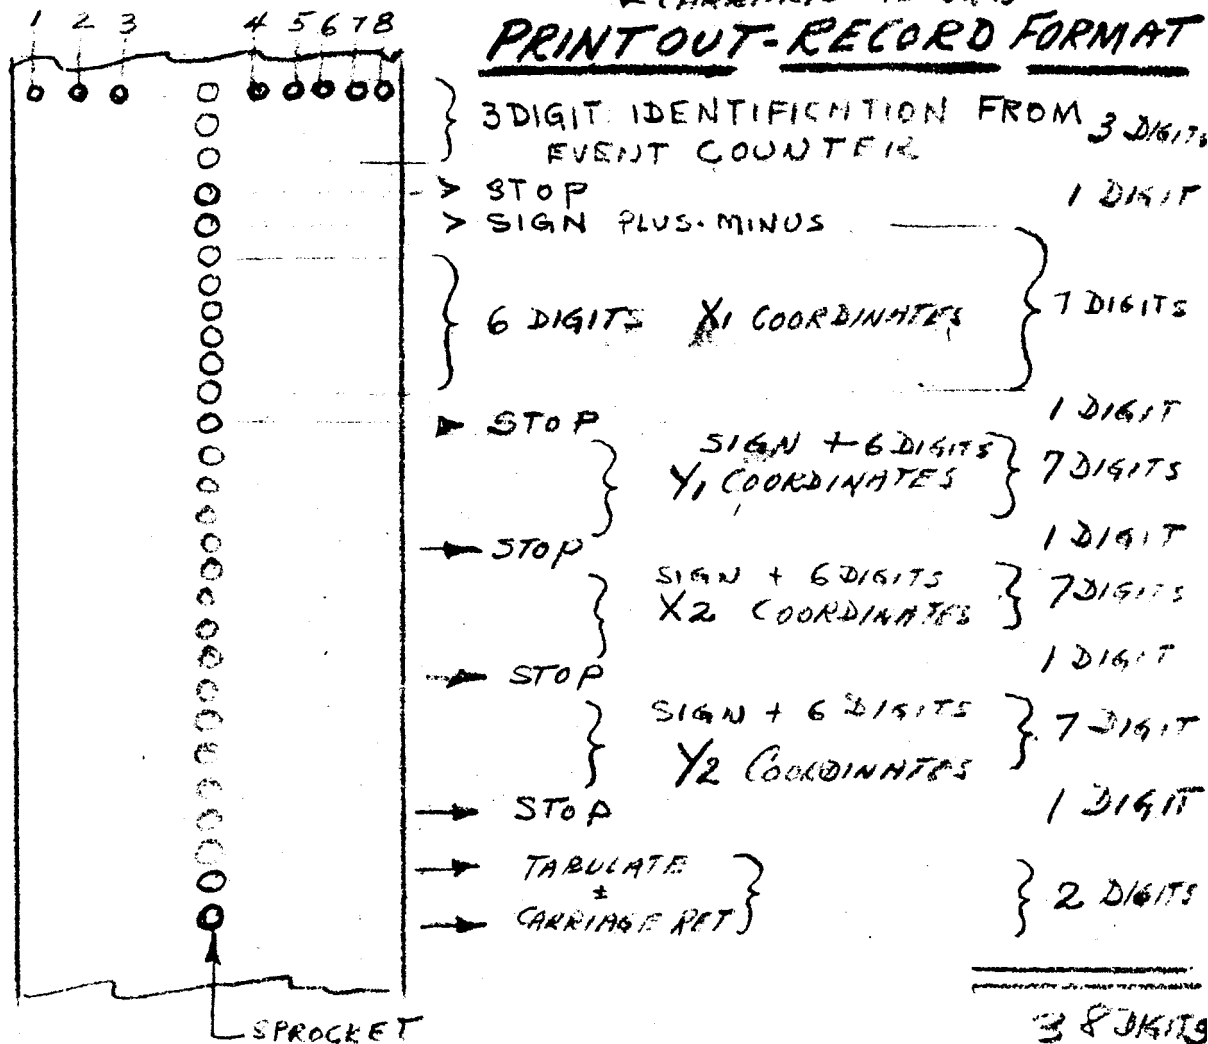 1 2 3 4 5 6 7 8
PRINTOUT-RECORD FORMAT
3 DIGIT IDENTIFICATION FROM 3 DIGITS
EVENT COUNTER
STOP 1 DIGIT
SIGN PLUS-MINUS
6 DIGITS X1 COORDINATES 7 DIGITS
STOP 1 DIGIT
SIGN + 6 DIGITS
Y1 COORDINATES 7 DIGITS
STOP 1 DIGIT
SIGN + 6 DIGITS 7 DIGITS
X2 COORDINATES
STOP 1 DIGIT
SIGN + 6 DIGITS 7 DIGIT
Y2 COORDINATES
STOP 1 DIGIT
TABULATE
±
CARRIAGE RET 2 DIGITS
38 DIGITS
SPROCKET